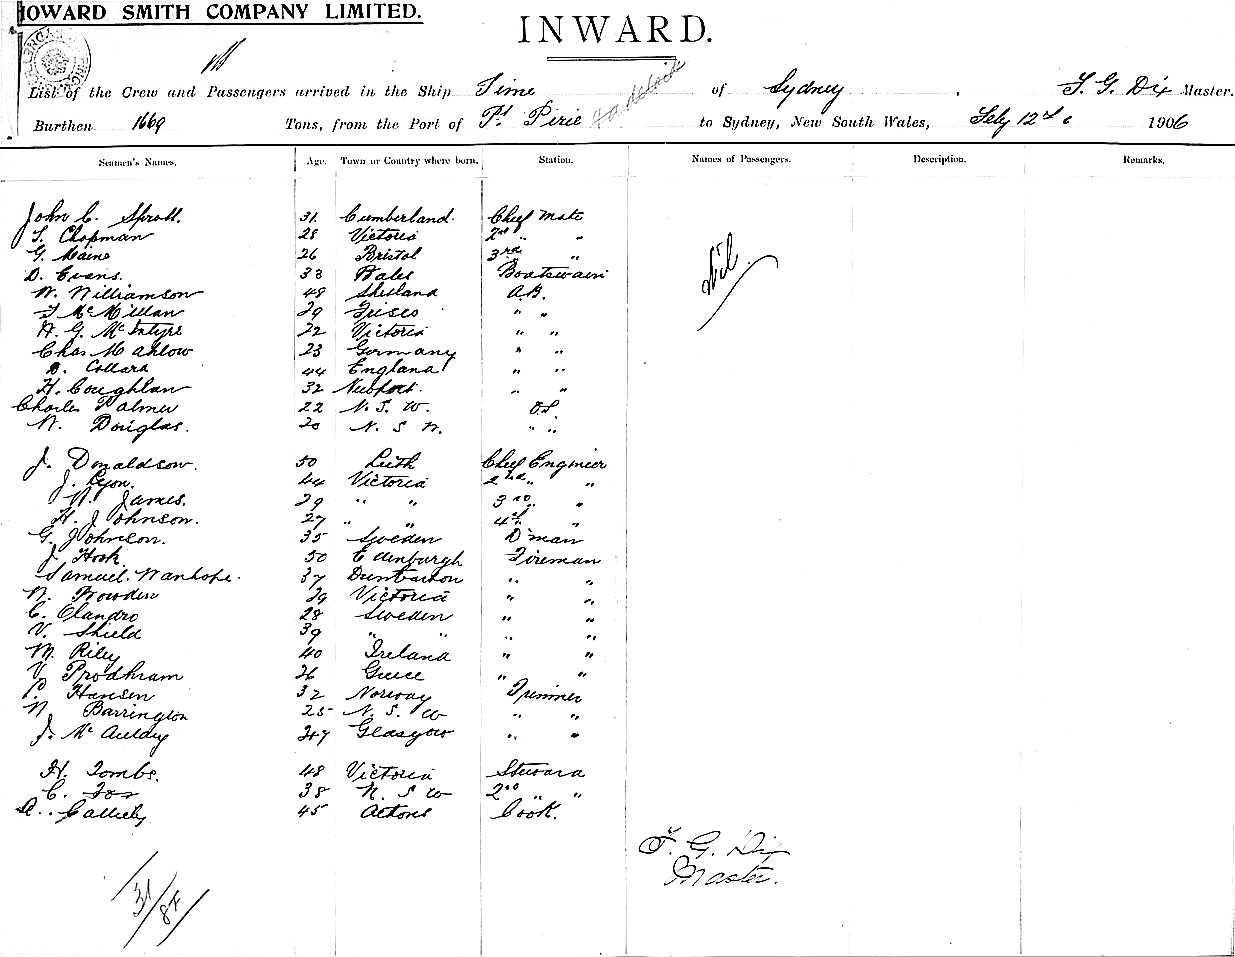 HOWARD SMITH COMPANY LIMITED.
INWARD.
List of the Crew and Passengers arrived in the Ship Time of Sydney, F. G. Dix Master.
Burthen 1669 Tons, from the Port of Pt Pirie Adelaide to Sydney, New South Wales, Feby 12th 1906
Seamen's Names. Age. Town or Country where born. Station. Names of Passengers. Description. Remarks.
John C. Sproll. 31 Cumberland. Chief Mate
T. Chapman 28 Victoria 2nd " "
G. Maine 26 Bristol 3rd "
D. Evans. 33 Wales Boatswain
Nil
W. Williamson 48 Shetland A.B.
McMillan 29 Frisco " "
H. G. McIntyre 22 Victoria " "
Chas Mahlow 23 Germany " "
D. Collard 44 England " "
H. Coughlan 32 " "
Charles Palmer 22 N. S. W. O.S.
W. Douglas. 20 N. S. W. " "
J. Donaldson. 50 Leith Chief Engineer
J. Lyon. 44 Victoria 2nd " "
W. James. 29 " " 3rd "
H. Johnson. 27 " " 4th "
G. Johnson. 35 Sweden D'man
J. Hook 50 Edenburgh Fireman
Samuel. Wanhope. 37 Dumbarton " "
N. Bowden 29 Victoria " "
C. Olandro 28 Sweden " "
V. Shield 39 " " " "
M. Riley 40 Ireland " "
V. Prodhram 26 Greece " "
P. Hansen 32 Norway Trimmer
W. Barrington 25 N. S. W " "
J. McAuldy 47 Glasgow " "
H. Tombs. 48 Victoria Steward
C. Fox 38 N. S W 2nd " "
45 Cook.
F. G. Dix
Master.
31/84